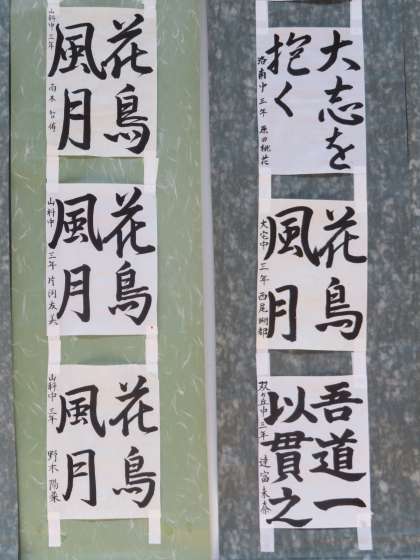 大志を
抱く
洛南中 三年
花鳥
風月
大宅中 三年
吾道一
以貫之
双ヶ丘中 三年
花鳥
風月
山科中 三年
花鳥
風月
山科中 三年 片渕友美
花鳥
風月
山科中 三年 野木 陽菜